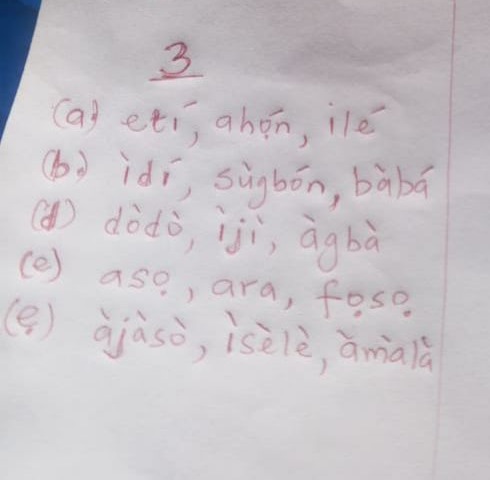 3
(a) etí, ahọ́n, ilé
(b) ìdí, sùgbọ́n, bàbá
(d) dòdò, ìjì, àgbà
(e) asọ, ara, fọsọ
(ẹ) àjàsò, ìsèlè, àmàlà